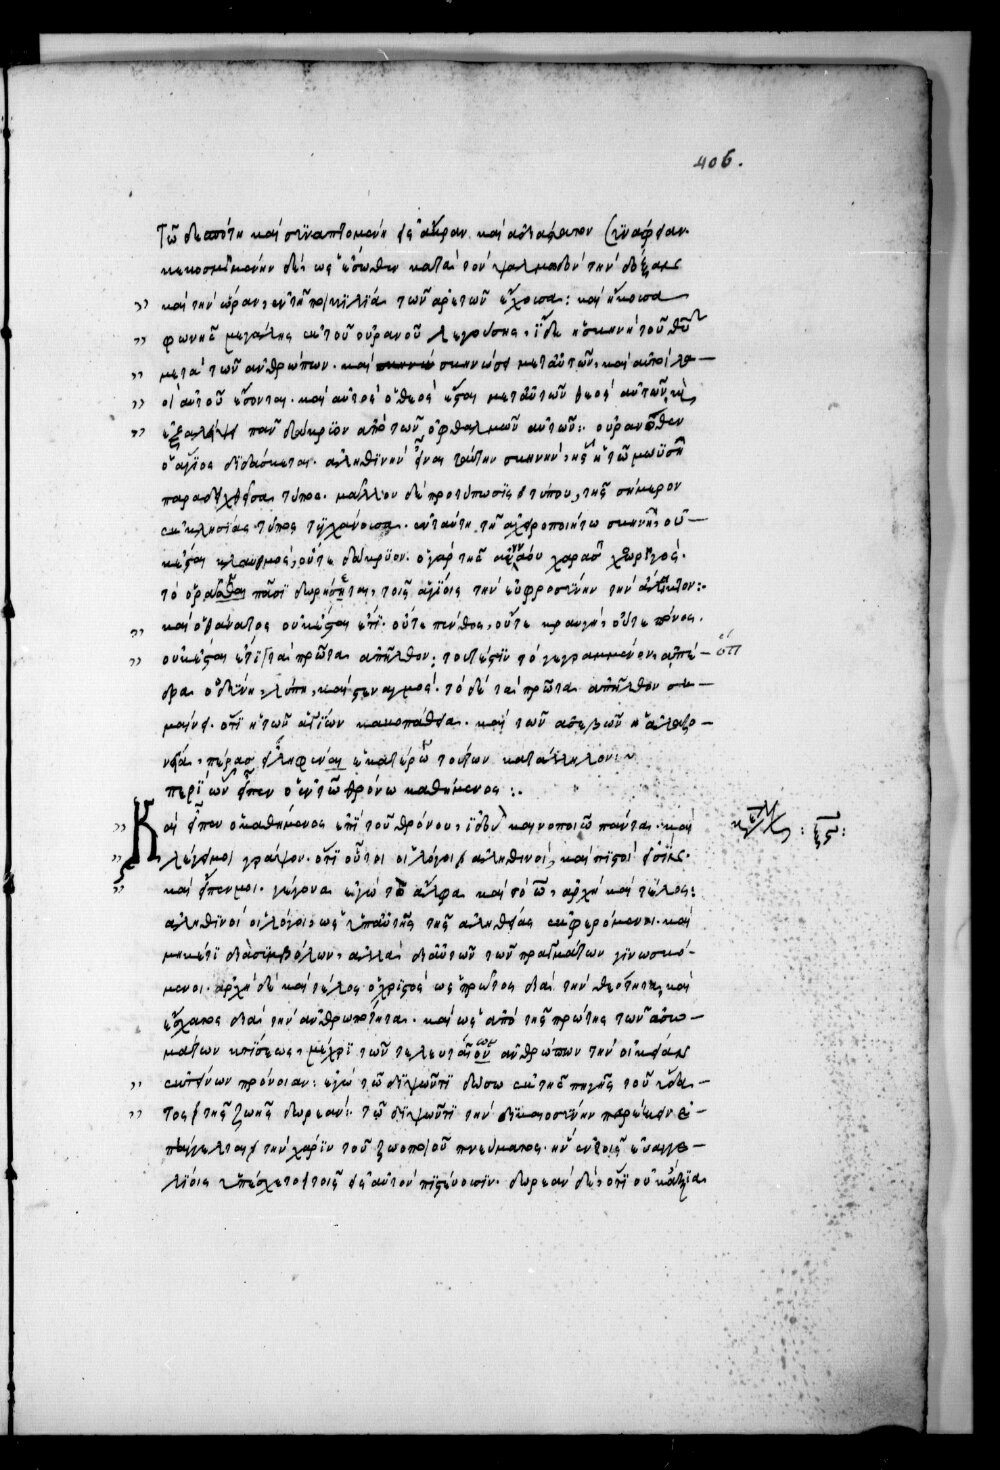 406.
Τῶ δεσπότη καὶ συναπτομένη εἰς ἄκραν καὶ ἀδιάσπαστον συνάφειαν.
κεκοσμημένην δὲ, ὡς ἔσωθεν κατὰ τὸν ψαλμωδὸν τὴν δόξαν
καὶ τὴν ὥραν, ἐν τῆ ποικιλία τῶν ἀρετῶν ἔχουσα: καὶ ἤκουσα
φωνῆς μεγάλης ἐκ τοῦ οὐρανοῦ λεγούσης, ἴδε ἡ σκηνὴ τοῦ θεοῦ
μετὰ τῶν ἀνθρώπων. καὶ σκηνώσει μετ αὐτῶν, καὶ αὐτοὶ λα-
οὶ αὐτοῦ ἔσονται. καὶ αὐτὸς ὁ θεὸς ἔσται μετ αὐτῶν θεὸς αὐτῶν, καὶ
ἐξαλείψει πᾶν δάκρυον ἀπὸ τῶν ὀφθαλμῶν αὐτῶν: οὐρανόθεν
ὁ ἅγιος διδάσκεται. ἀληθινὴν εἶναι ταύτην σκηνὴν, ἧς ἡ τῶ μωϋσῆ
παραδειχθεῖσα τύπος. μᾶλλον δὲ προτύπωσις τύπου, τῆς σήμερον
ἐκκλησίας τύπος τυγχάνουσα. ἐν ταύτη τῆ ἀχειροποιήτω σκηνῆ, οὐ-
κ ἔσται κλαυθμὸς, οὔτε δάκρυον. ὁ γὰρ τῆς ἀεννάου χαρᾶς χορηγὸς.
τὸ ὁρᾶσθαι πᾶσι δωρήσεται, τοῖς ἁγίοις τὴν εὐφροσύνην τὴν ἄληκτον:.
καὶ ὁ θάνατος οὐκ ἔσται ἔτι. οὔτε πένθος, οὔτε κραυγὴ, οὔτε πόνος.
οὐκ ἔσται ἔτι, τὰ πρῶτα ἀπῆλθον: τουτέστιν τὸ γεγραμμένον, ἀπέ-
δρα ὀδύνη, λύπη, καὶ στεναγμὸς. τὸ δὲ τὰ πρῶτα ἀπῆλθον ση-
μαίνει. ὅτι ἡ τῶν ἁγίων κακοπάθεια. καὶ τῶν ἀσεβῶν ἡ ἀλαζο-
νεία, πέρας εἴληφεν ἑκατέρω τούτων κατάλληλον:
περὶ ὧν εἶπεν ὁ ἐν τῶ θρόνω καθήμενος:.
Καὶ εἶπεν ὁ καθήμενος ἐπὶ τοῦ θρόνου, ἰδοὺ καινοποιῶ πάντα. καὶ
λέγει μοι γράψον. ὅτι οὗτοι οἱ λόγοι ἀληθινοὶ, καὶ πιστοὶ εἰσὶν.
καὶ εἶπεν μοι. γέγονα ἐγὼ τὸ ἄλφα καὶ τὸ ω, ἀρχὴ καὶ τέλος:
ἀληθινοὶ οἱ λόγοι, ὡς ὑπ αὐτῆς τῆς ἀληθείας ἐκφερόμενοι. καὶ
μηκέτι διὰ συμβόλων, ἀλλὰ δι αὐτῶν τῶν πραγμάτων γινωσκό-
μενοι. ἀρχὴ δὲ καὶ τέλος ὁ χριστὸς ὡς πρῶτος διὰ τὴν θεότητα, καὶ
ἔσχατος διὰ τὴν ἀνθρωπότητα. καὶ ὡς ἀπὸ τῆς πρώτης τῶν ἀσω-
μάτων κτίσεως, μέχρι τῶν τελευταίων ἀνθρώπων τὴν οἰκείαν
ἐκτείνων πρόνοιαν: ἐγὼ τῶ διψῶντι δώσω ἐκ τῆς πηγῆς τοῦ ὕδα-
τος τῆς ζωῆς δωρεὰν: τῶ διψῶντι τὴν δικαιοσύνην παρέχειν ἐ-
πήγγελται τὴν χάριν τοῦ ζωοποιοῦ πνεύματος. ἣν ἐν τοῖς εὐαγγε-
λίοις ὑπέσχετο τοῖς εἰς αὐτὸν πιστεύουσιν. δωρεὰν δὲ, ὅτι οὐκ ἄξια